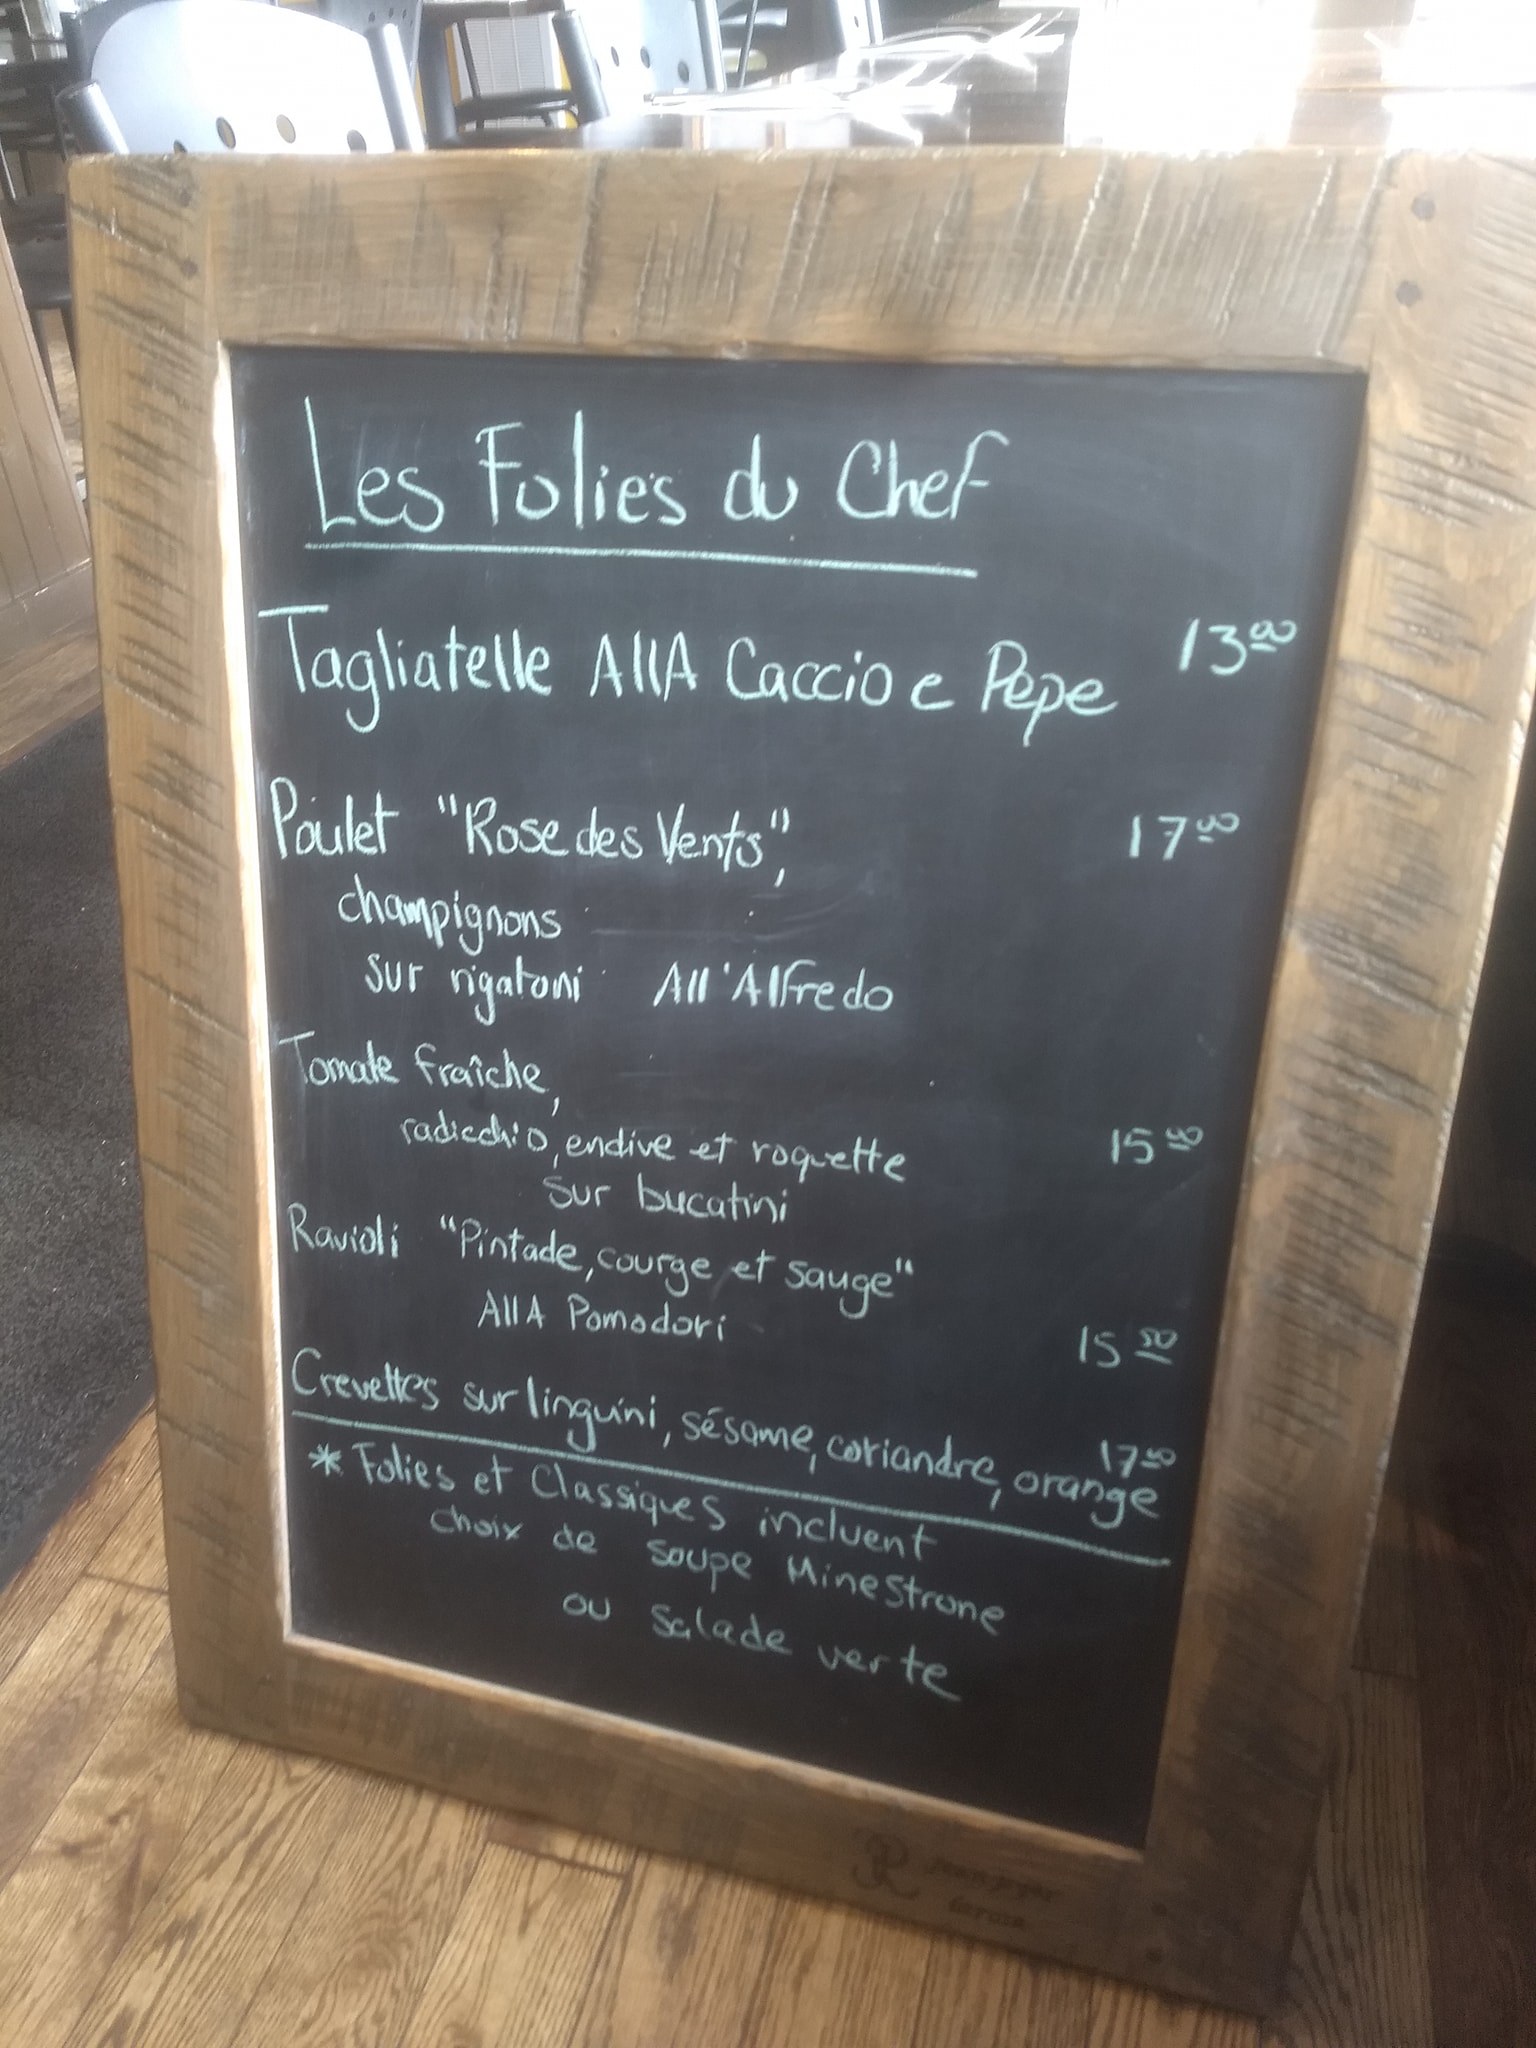 Les Folies du Chef
Tagliatelle AllA Caccio e Pepe 13.00
Poulet "Rose des Vents", 17.00
champignons
sur rigatoni All'Alfredo
Tomate fraîche,
radicchio, endive et roquette 15.00
sur bucatini
Ravioli "Pintade, courge et sauge"
AllA Pomodori 15.50
Crevettes sur linguini, sésame, coriandre, orange 17.50
* Folies et Classiques incluent
choix de soupe Minestrone
ou salade verte